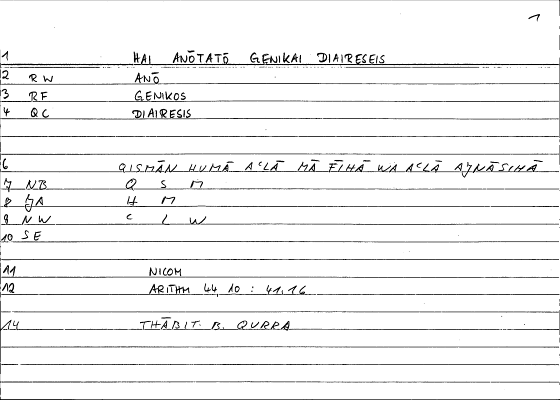 1
1 HAI ANŌTATŌ GENIKAI DIAIRESEIS
2 RW ANŌ
3 RF GENIKOS
4 QC DIAIRESIS
6 QISMĀN HUMĀ AʿLĀ MĀ FĪHĀ WA AʿLĀ AJNĀSIHĀ
7 NB Q S M
8 JA H M
9 NW ʿ L W
10 SE
11 NICOM
12 ARITHM 44,10 : 41,16
14 THĀBIT B. QURRA